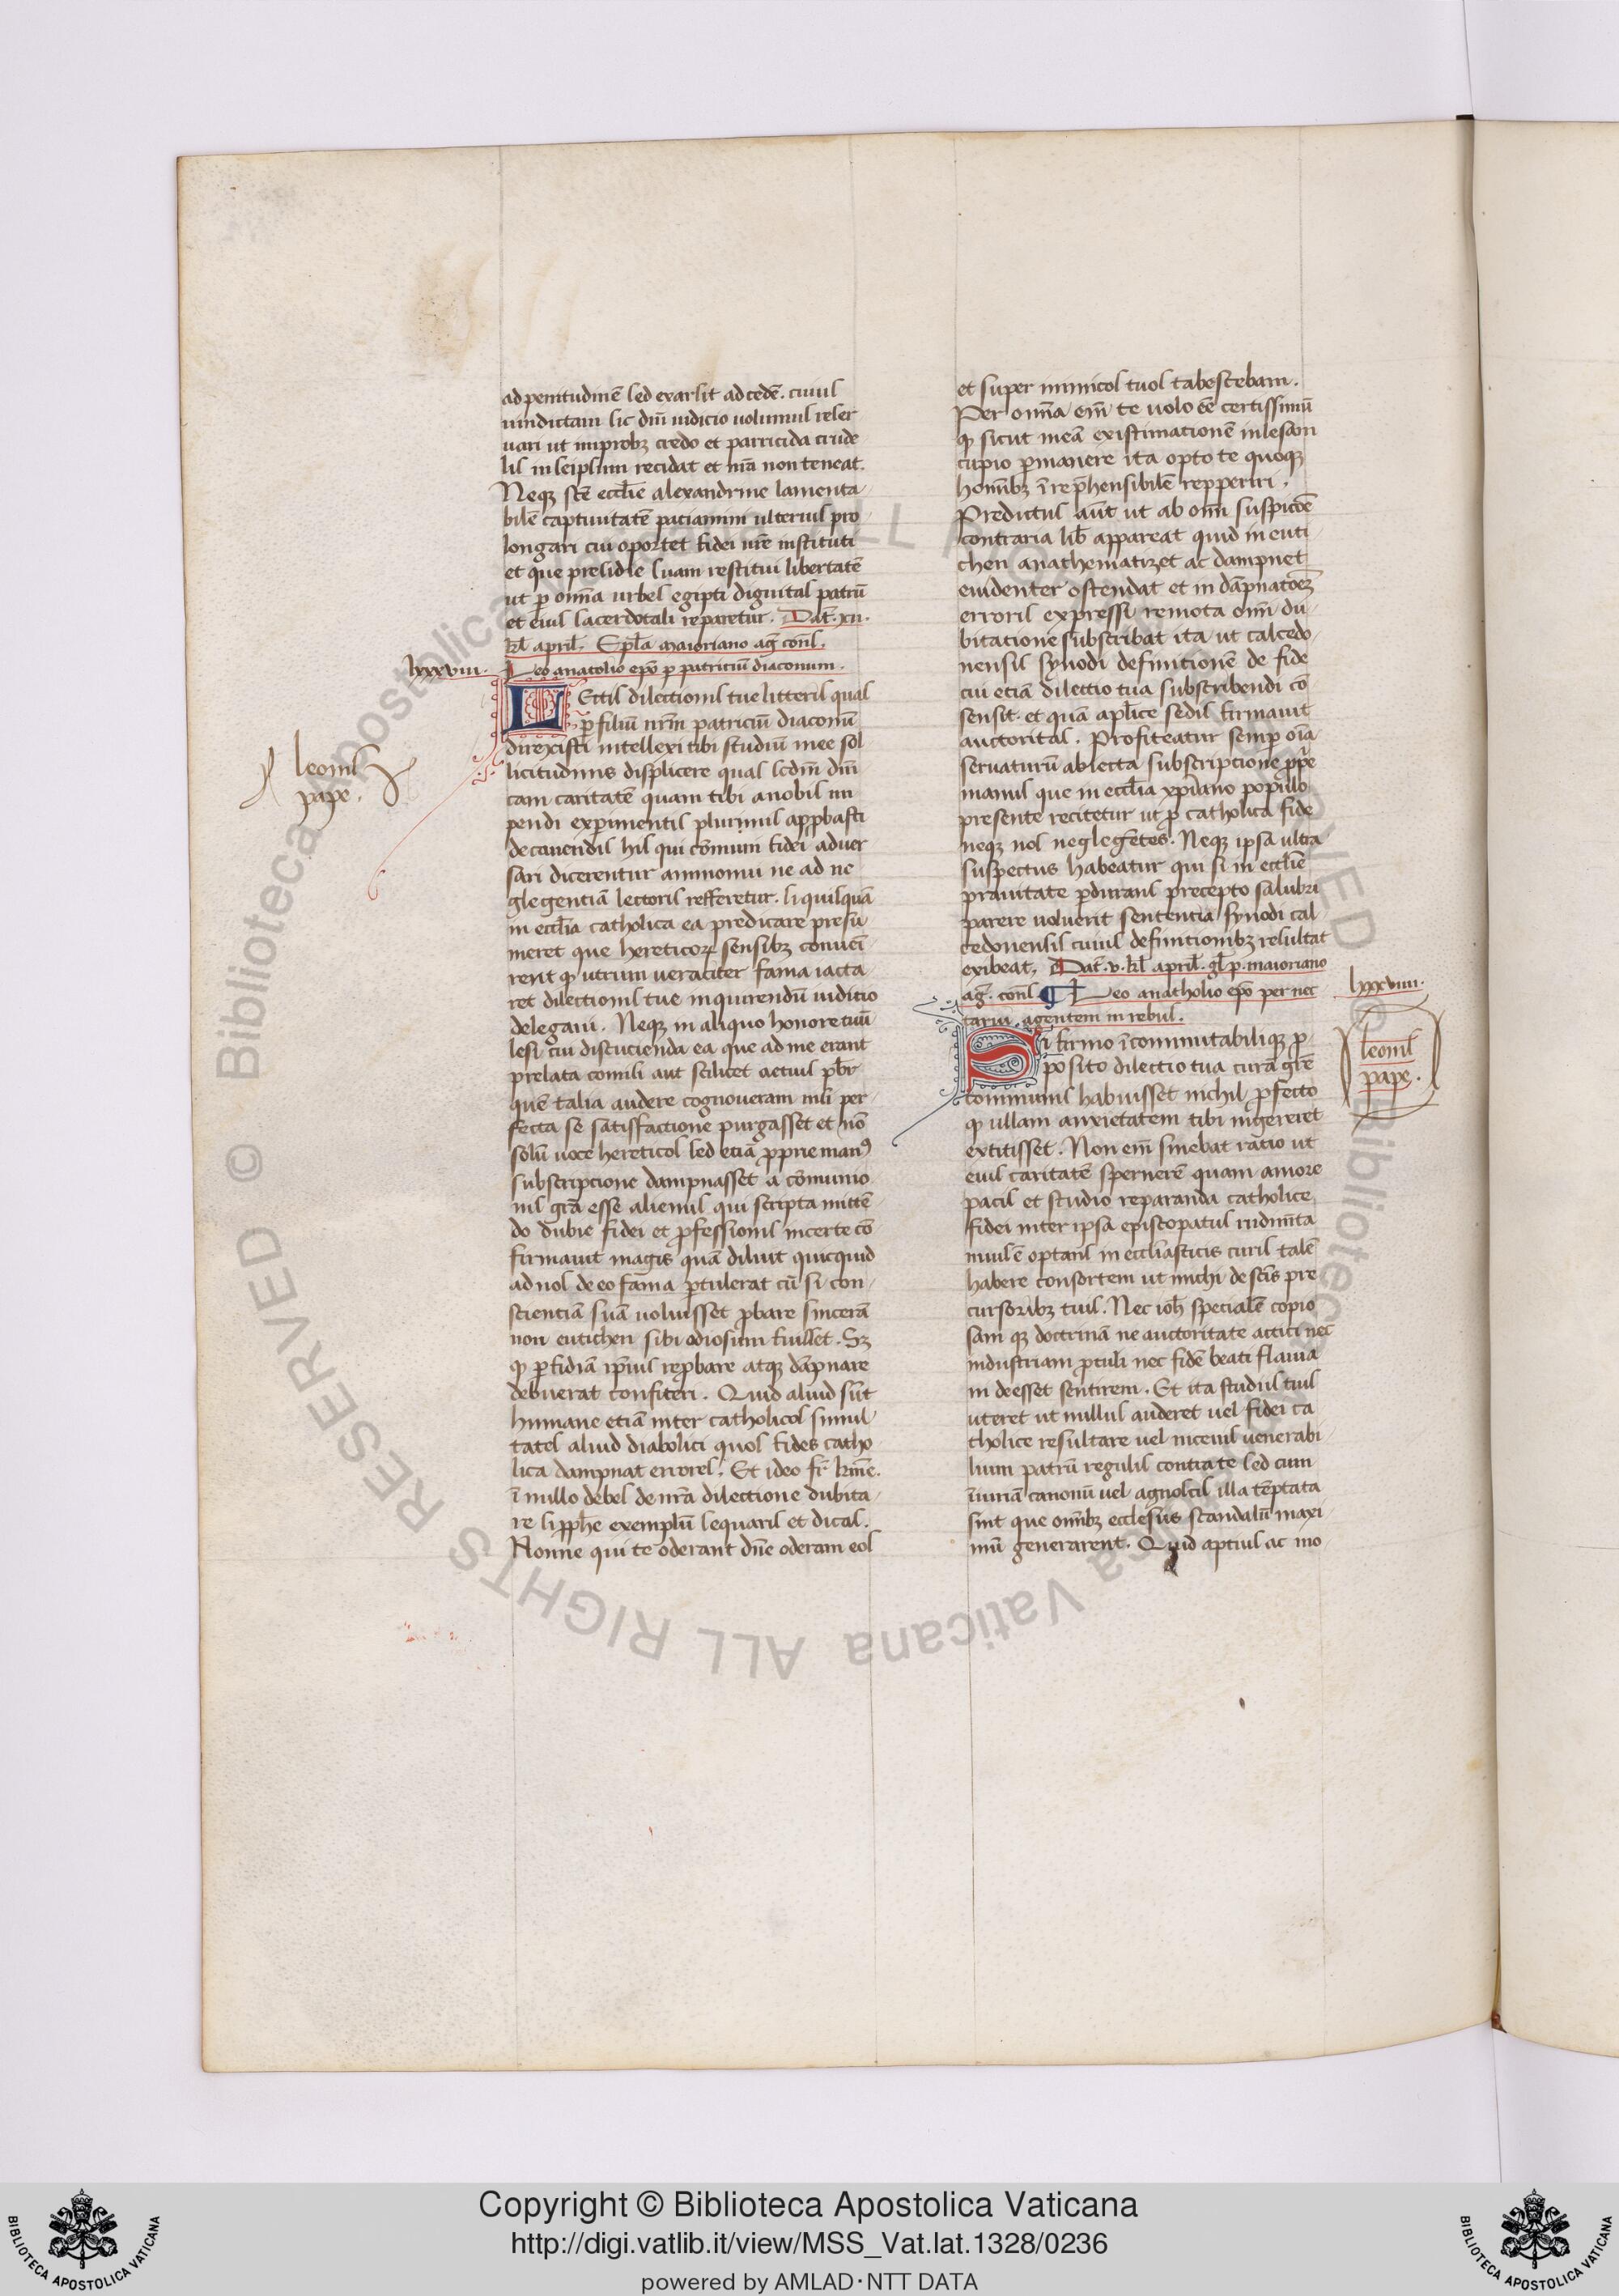 ad penitudinē sed exarsit ad cedē. cuius
uindictam sic diui iudicio uolumus reser
uari ut improbꝫ credo et parricida crude
lis in seipsum recidat et nr̄a non teneat.
Neqꝫ scē eccl̄ie alexandrine lamenta
bilē captiuitatē paciamini ulterius pro
longari cui oportet fidei nr̄e instituti
et que presidiis suam restitui libertatē
ut ꝑ omn̄a urbes egipti dignitas patrū
et eius sacerdotali reparetur. Dat̄. xii.
kl̄ april̄. Epl̄a maioriano aḡ conl̄.
lxxxviii. Leo anatolio ep̄o ꝑ patriciū diaconum.
LEctis dilectionis tue litteris quas
ꝑ filiū nr̄m patriciū diaconū
direxisti intellexi tibi studiū mee sol
licitudinis displicere quas scd̄m diui
leonis
pape.
cam caritatē quam tibi a nobis im
pendi experimentis plurimis aꝓbasti
de cauendis his qui cōmuni fidei aduer
sari dicerentur ammonui ne ad ne
glegentiā lectoris refferetur. si quisquā
in eccl̄ia catholica ea predicare presū
meret que hereticoꝝ sensibꝫ conueni
rent ꝙ utrum ueraciter fama iacta
ret dilectionis tue inquirendū iudicio
delegaui. Neqꝫ in aliquo honore tuū
lesi cū discucienda ea que ad me erant
prelata comisi aut scilicet actius pb̄r
quē talia audere cognoueram nisi per
fecta se satisfactione purgasset et nō
solū uoce hereticos sed etiā ꝓprie manꝰ
subscripcione dampnasset a cōmunio
nis grā esse alienus qui scripta mittē
do dubie fidei et ꝓfessionis incerte cō
firmauit magis quā diluit quicquid
ad nos de eo fama ꝑtulerat cū si con
scientiā suā uoluisset ꝓbare sincerā
non eutichen sibi odiosum fuisset. Sꝫ
ꝙ ꝑfidiā ip̄ius reꝓbare atqꝫ dāpnare
debuerat confiteri. Quid aliud sūt
humane etiā inter catholicos simul
tates aliud diabolici quos fides catho
lica dampnat errores. Et ideo fr̄ kme.
ī nullo debes de nr̄a dilectione dubita
re si ꝓph̄e exemplū sequaris et dicas.
Nonne qui te oderant dn̄e oderam eos
et super inimicos tuos tabescebam.
Per omn̄a em̄ te uolo ēē certissimū
ꝙ sicut meā existimationē inlesam
cupio ꝑmanere ita opto te quoqꝫ
homībꝫ īrep̄hensibilē repperiri.
Predictus aut̄ ut ab om̄i suspicōē
contraria lib̄ appareat quid in euti
chen anathematizet ac dampnet
euidenter ostendat et in dāpnatoēꝫ
erroris expressi remota om̄i du
bitatione subscribat ita ut calcedo
nensis synodi definitionē de fide
cui etiā dilectio tua subscribendi cō
sensit. et quā apl̄ice sedis firmauit
auctoritas. Profiteatur semꝑ oīa
seruaturū abiecta subscripcione ꝓp̄e
manus que in eccl̄ia xp̄iano populo
presente recitetur ut ꝓ catholica fide
neqꝫ nos neglegētes. Neqꝫ ipsa ultra
suspectus habeatur qui si in eccl̄ie
prauitate ꝑdurans precepto salubri
parere uoluerit sententia synodi cal
cedonensis cuius definitionibꝫ resultat
exibeat. Dat̄. v. kl̄ april̄. gl̄ p. maioriano
aḡ. conl̄. ¶ Leo anatholio ep̄o per nec
lxxxviiii.
tariū agentem in rebus.
SI firmo īcommutabiliqꝫ ꝓ
leonis
pape.
posito dilectio tua curā grē
communis habuisset nichil ꝓfecto
ꝙ ullam anxietatem tibi ingereret
extitisset. Non em̄ sinebat ratio ut
eius caritatē spernerē quam amore
pacis et studio reparanda catholice
fidei inter ipsa episcopatus rudim̄ta
iuuissē optans in eccl̄iasticis curis talē
habere consortem ut michi de scīs pre
cursoribꝫ tuis. Nec ioh̄ specialē copio
sam qꝫ doctrinā ne auctoritate actici nec
industriam ꝓculi nec fidē beati flauia
ni deesset sentirem. Et ita studiis tuis
uteret ut nullus auderet uel fidei ca
tholice resultare uel nicenis uenerabi
lium patrū regulis contraite sed cum
īiuriā canonū uel agnoscis illa tēptata
sint que omībꝫ ecclesiis scandalū maxi
mū generarent. Quid aptius ac mo
Copyright © Biblioteca Apostolica Vaticana
http://digi.vatlib.it/view/MSS_Vat.lat.1328/0236
powered by AMLAD·NTT DATA